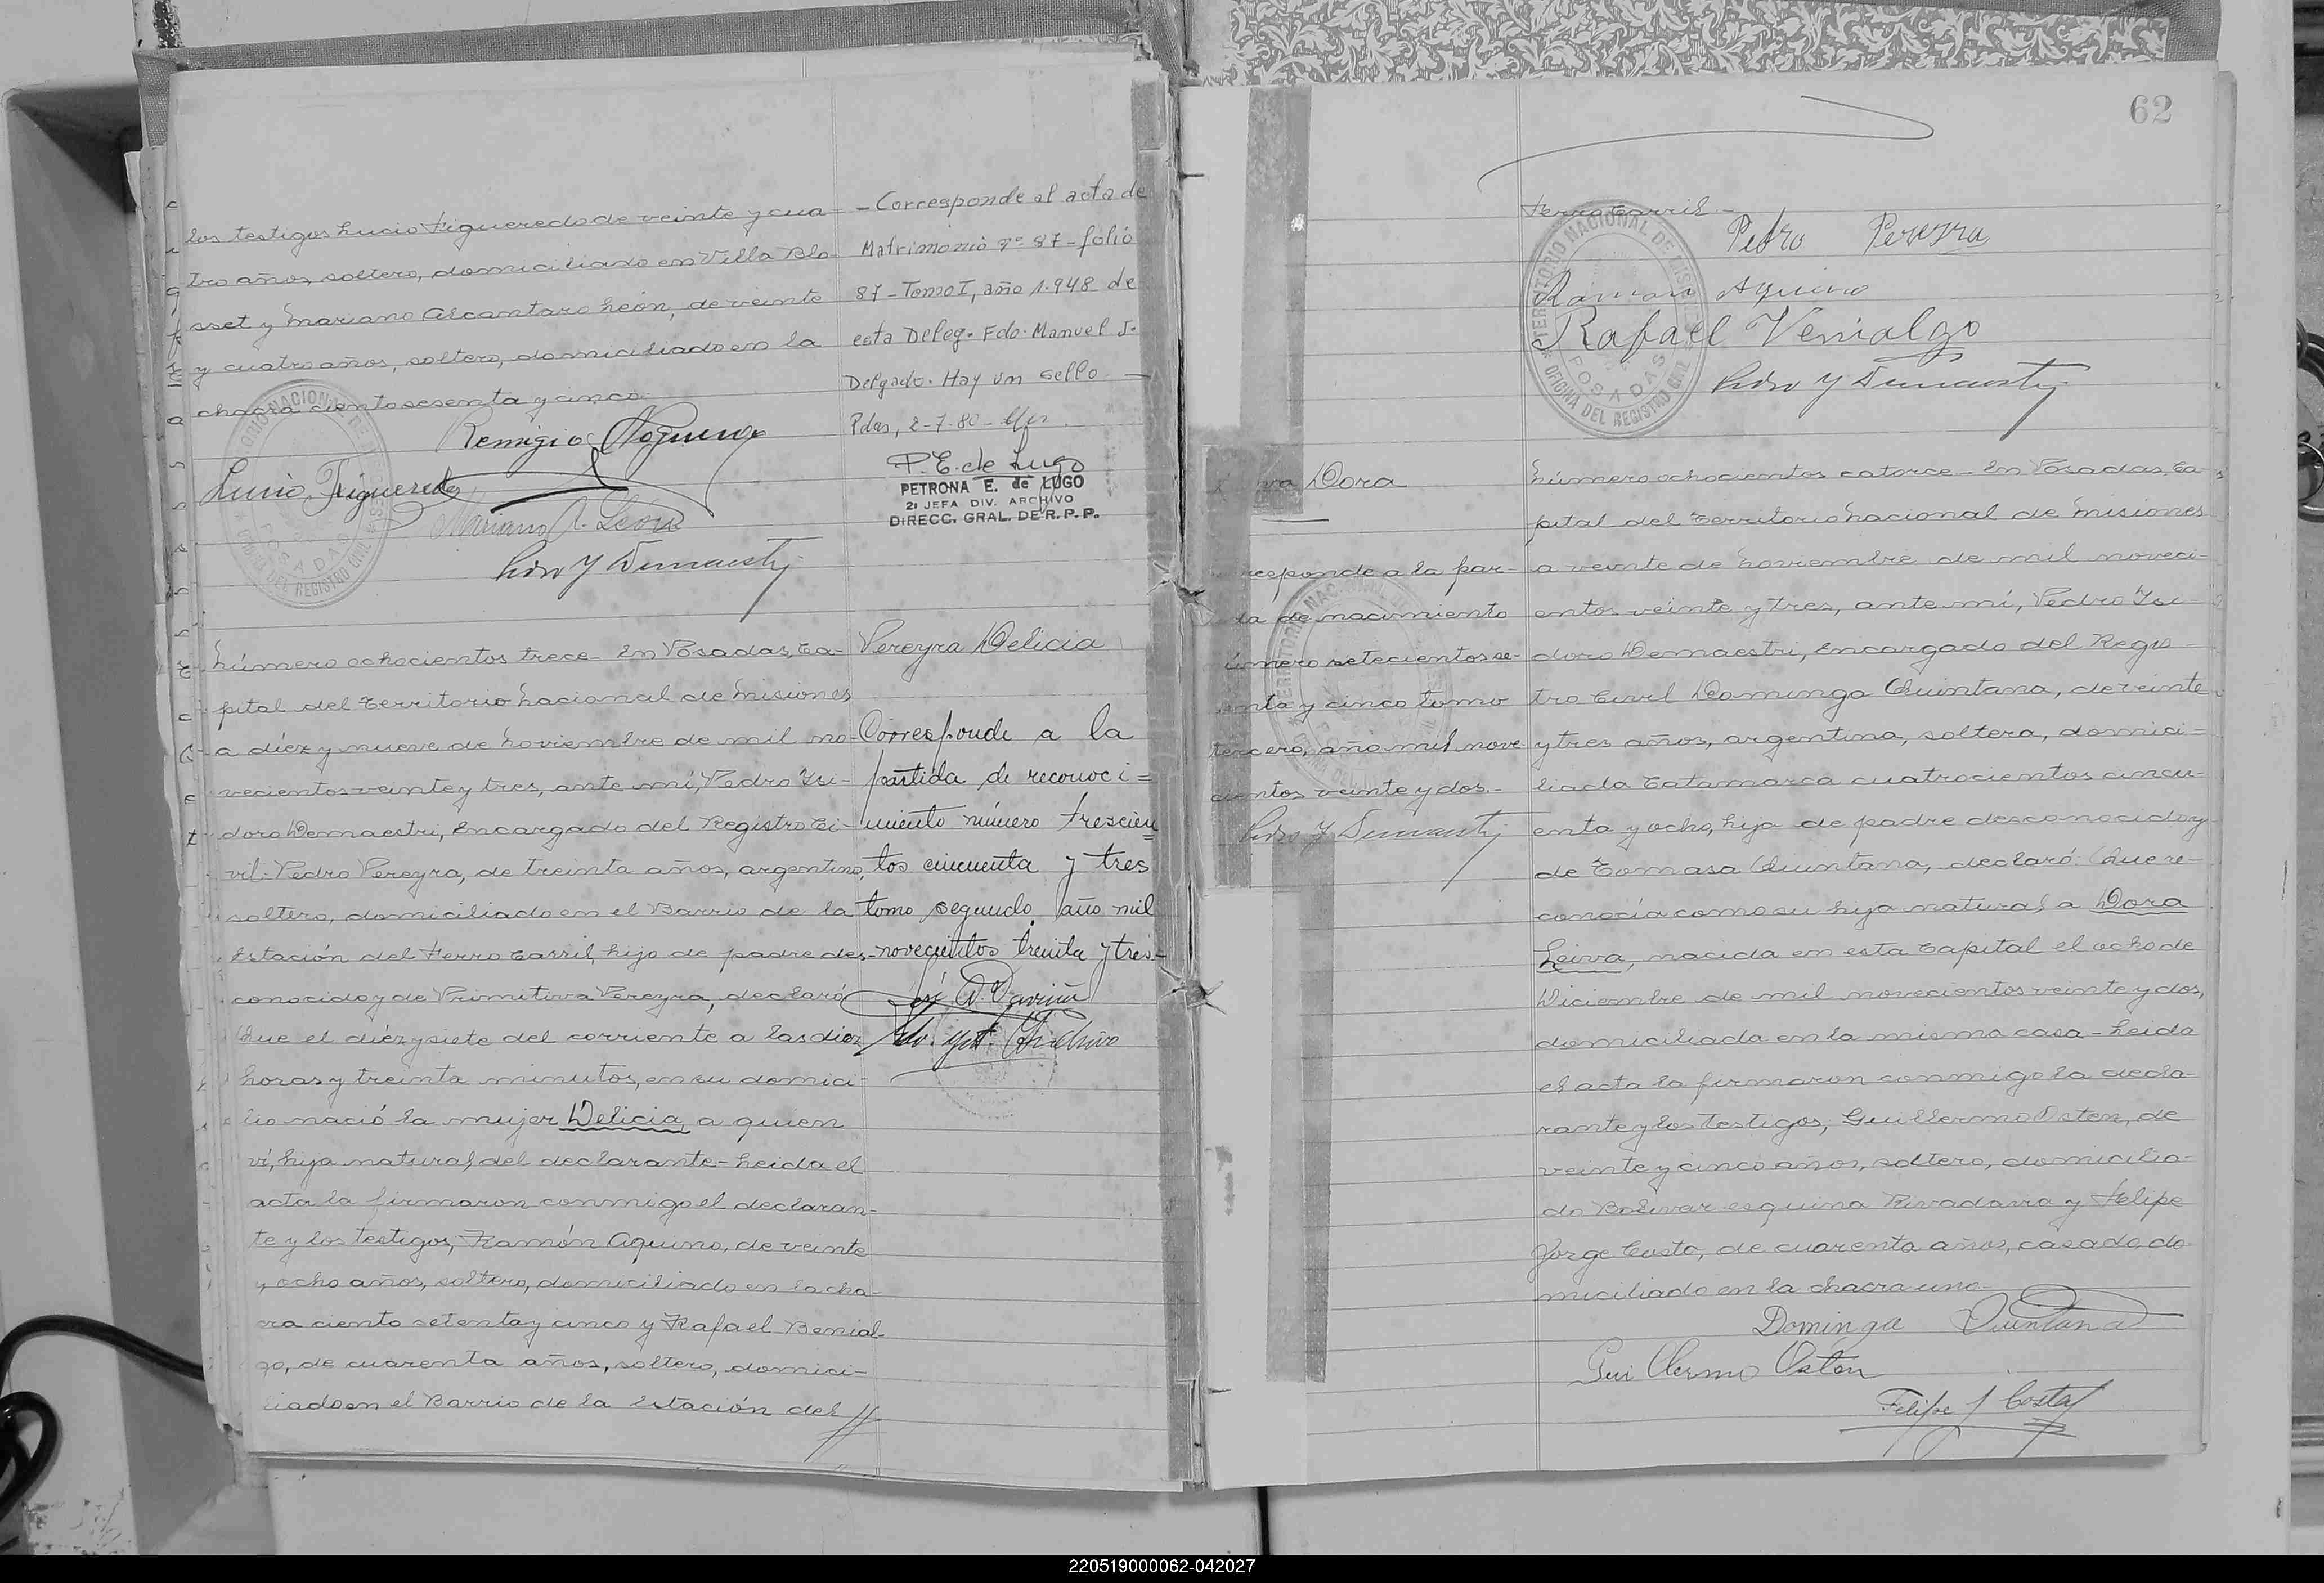 los testigos Lucio Figueredo de veinte y cua-
tro años, soltero, domiciliado en Villa Blo-
sset y Mariano Alcantaro León, de veinte
y cuatro años, soltero, domiciliado en la
chacra ciento sesenta y cinco.
Remigio Noguera
Lucio Figueredo
Mariano A. Leon
Pedro Y Demaestri
- Corresponde al acta de
Matrimonio nº 87 - folio
87 - Tomo I, año 1.948 de
esta Deleg. Fdo. Manuel J.
Delgado. Hay un sello. —
Pdas, 2-7-80 -
P. E. de Lugo
PETRONA E. de LUGO
2a JEFA DIV. ARCHIVO
DIRECC. GRAL. DE R. P. P.
Número ochocientos trece - En Posadas, Ca-
pital del Territorio Nacional de Misiones
a diéz y nueve de Noviembre de mil no-
vecientos veinte y tres, ante mí, Pedro Ysi-
doro Demaestri, Encargado del Registro Ci-
vil: Pedro Pereyra, de treinta años, argentino,
soltero, domiciliado en el Barrio de la
Estación del Ferro Carril, hijo de padre des-
conocido y de Primitiva Pereyra, declaró:
Que el diéz y siete del corriente a las diez
horas y treinta minutos, en su domici-
lio nació la mujer Delicia, a quien
ví, hija natural, del declarante - Leida el
acta la firmaron conmigo el declaran-
te y los testigos, Ramón Aquino, de veinte
y ocho años, soltero, domiciliado en la cha-
cra ciento setenta y cinco y Rafael Benial-
go, de cuarenta años, soltero, domici-
liado en el Barrio de la Estación del //
Pereyra Delicia
Corresponde a la
partida de reconoci=
miento número trescien
tos cincuenta y tres
tomo segundo, año mil
novecientos treinta y tres-
62
Ferro Carril -
Pedro Pereyra
Ramon Aquino
Rafael Venialgo
Pedro Y Demaestri
TERRITORIO NACIONAL DE MISIONES
POSADAS
OFICINA DEL REGISTRO CIVIL
Dora
responde a la par-
da de nacimiento
úmero setecientos se-
enta y cinco tomo
tercero, año mil nove-
cientos veinte y dos. -
Pedro Y Demaestri
Número ochocientos catorce - En Posadas, Ca-
pital del Territorio Nacional de Misiones
a veinte de Noviembre de mil noveci-
entos veinte y tres, ante mí, Pedro Ysi-
doro Demaestri, Encargado del Regis-
tro Civil Dominga Quintana, de veinte
y tres años, argentina, soltera, domici-
liada Catamarca cuatrocientos cincu-
enta y ocho, hija de padre desconocido y
de Tomasa Quintana, declaró: Que re-
conocía como su hija natural, a Dora
Leiva, nacida en esta Capital el ocho de
Diciembre de mil novecientos veinte y dos,
domiciliada en la misma casa - Leida
el acta la firmaron conmigo la decla-
rante y los testigos, Guillermo Osten, de
veinte y cinco años, soltero, domicilia-
do Bolivar esquina Rivadavia y Felipe
Jorge Costa, de cuarenta años, casado, do-
miciliado en la chacra una -
Dominga Quintana
Guillermo Osten
Felipe J Costa
220519000062-042027